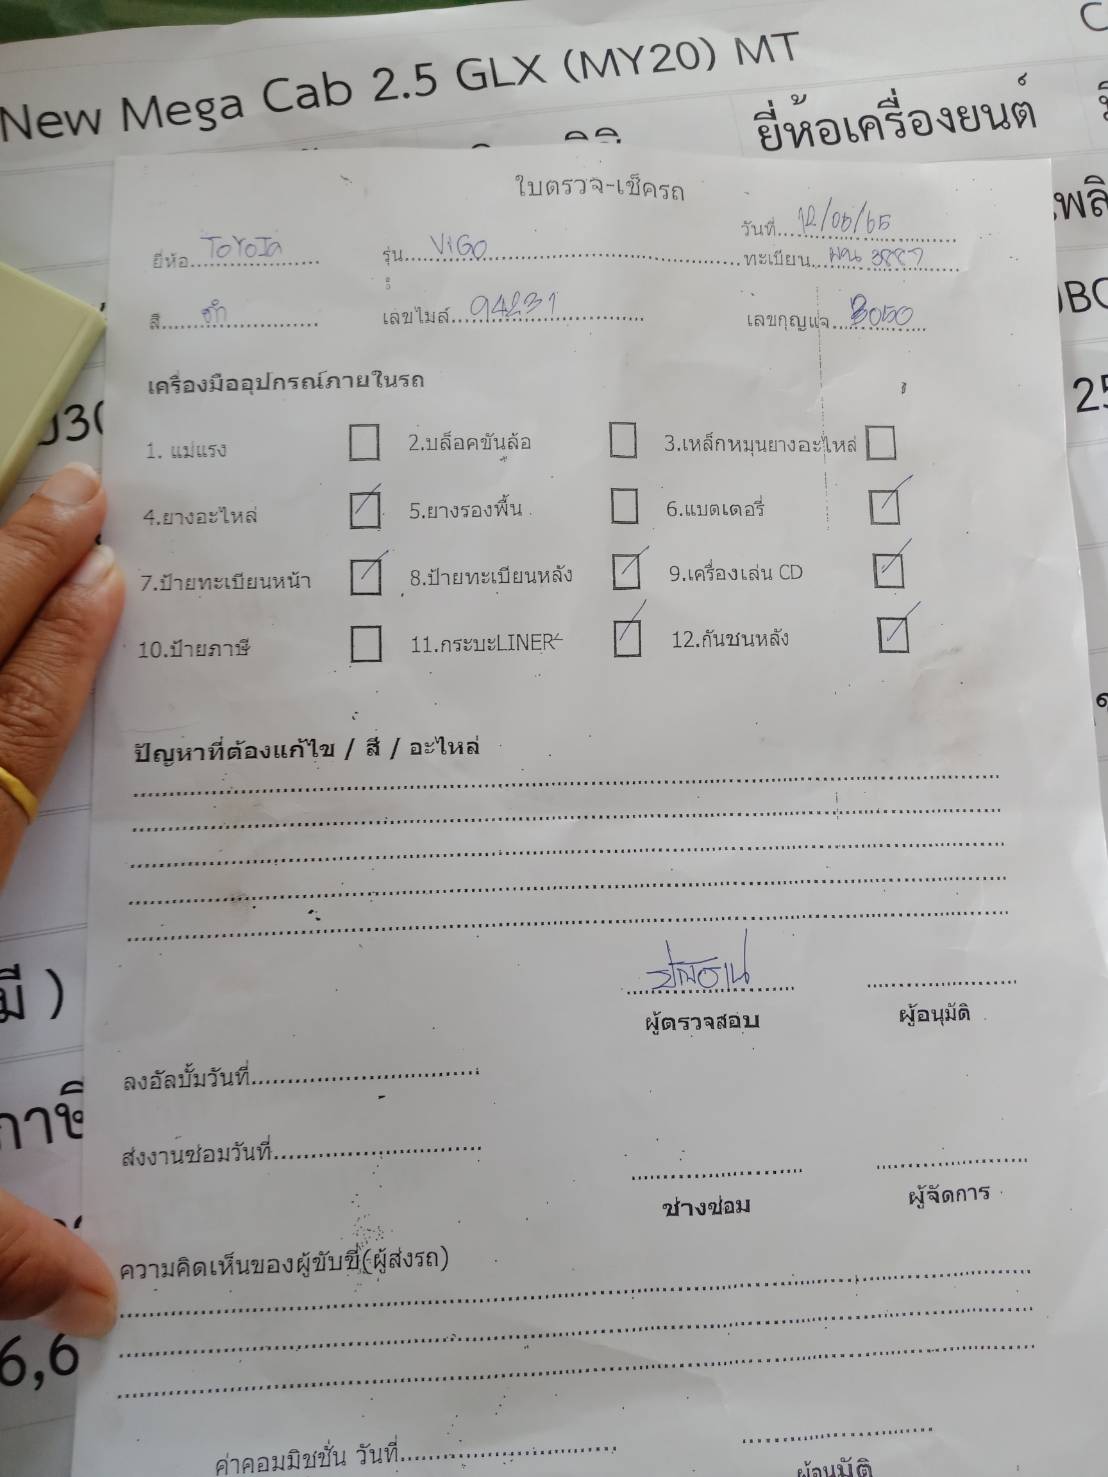 New Mega Cab 2.5 GLX (MY20) MT
ยี่ห้อเครื่องยนต์
ใบตรวจ-เช็ครถ
วันที่ 12/06/65
ยี่ห้อ TOYOTA รุ่น VIGO ทะเบียน
สี ดำ เลขไมล์ 94231 เลขกุญแจ B050
เครื่องมืออุปกรณ์ภายในรถ
1. แม่แรง 2.บล็อคขันล้อ 3.เหล็กหมุนยางอะไหล่
4.ยางอะไหล่ 5.ยางรองพื้น 6.แบตเตอรี่
7.ป้ายทะเบียนหน้า 8.ป้ายทะเบียนหลัง 9.เครื่องเล่น CD
10.ป้ายภาษี 11.กระบะLINER 12.กันชนหลัง
ปัญหาที่ต้องแก้ไข / สี / อะไหล่
ผู้ตรวจสอบ ผู้อนุมัติ
มี )
ลงอัลบั้มวันที่
ส่งงานซ่อมวันที่
ช่างซ่อม ผู้จัดการ
ความคิดเห็นของผู้ขับขี่(ผู้ส่งรถ)
6,6
ค่าคอมมิชชั่น วันที่
ผู้อนุมัติ